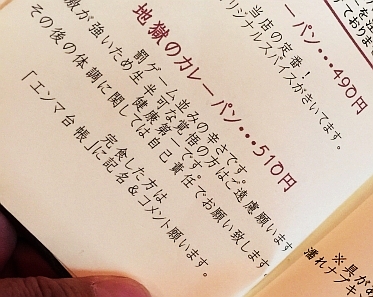 ーパン・・・490円
当店の定番！
リジナルスパイスがきいてます。
地獄のカレーパン・・・510円
罰ゲーム並みの辛さです。
生半可な覚悟の方はご遠慮願います
激が強いため健康第一です。
その後の体調に関しては自己責任でお願い致します。
完食した方は
「エンマ台帳」に記名＆コメント願います。
※具が
潰れナプキン